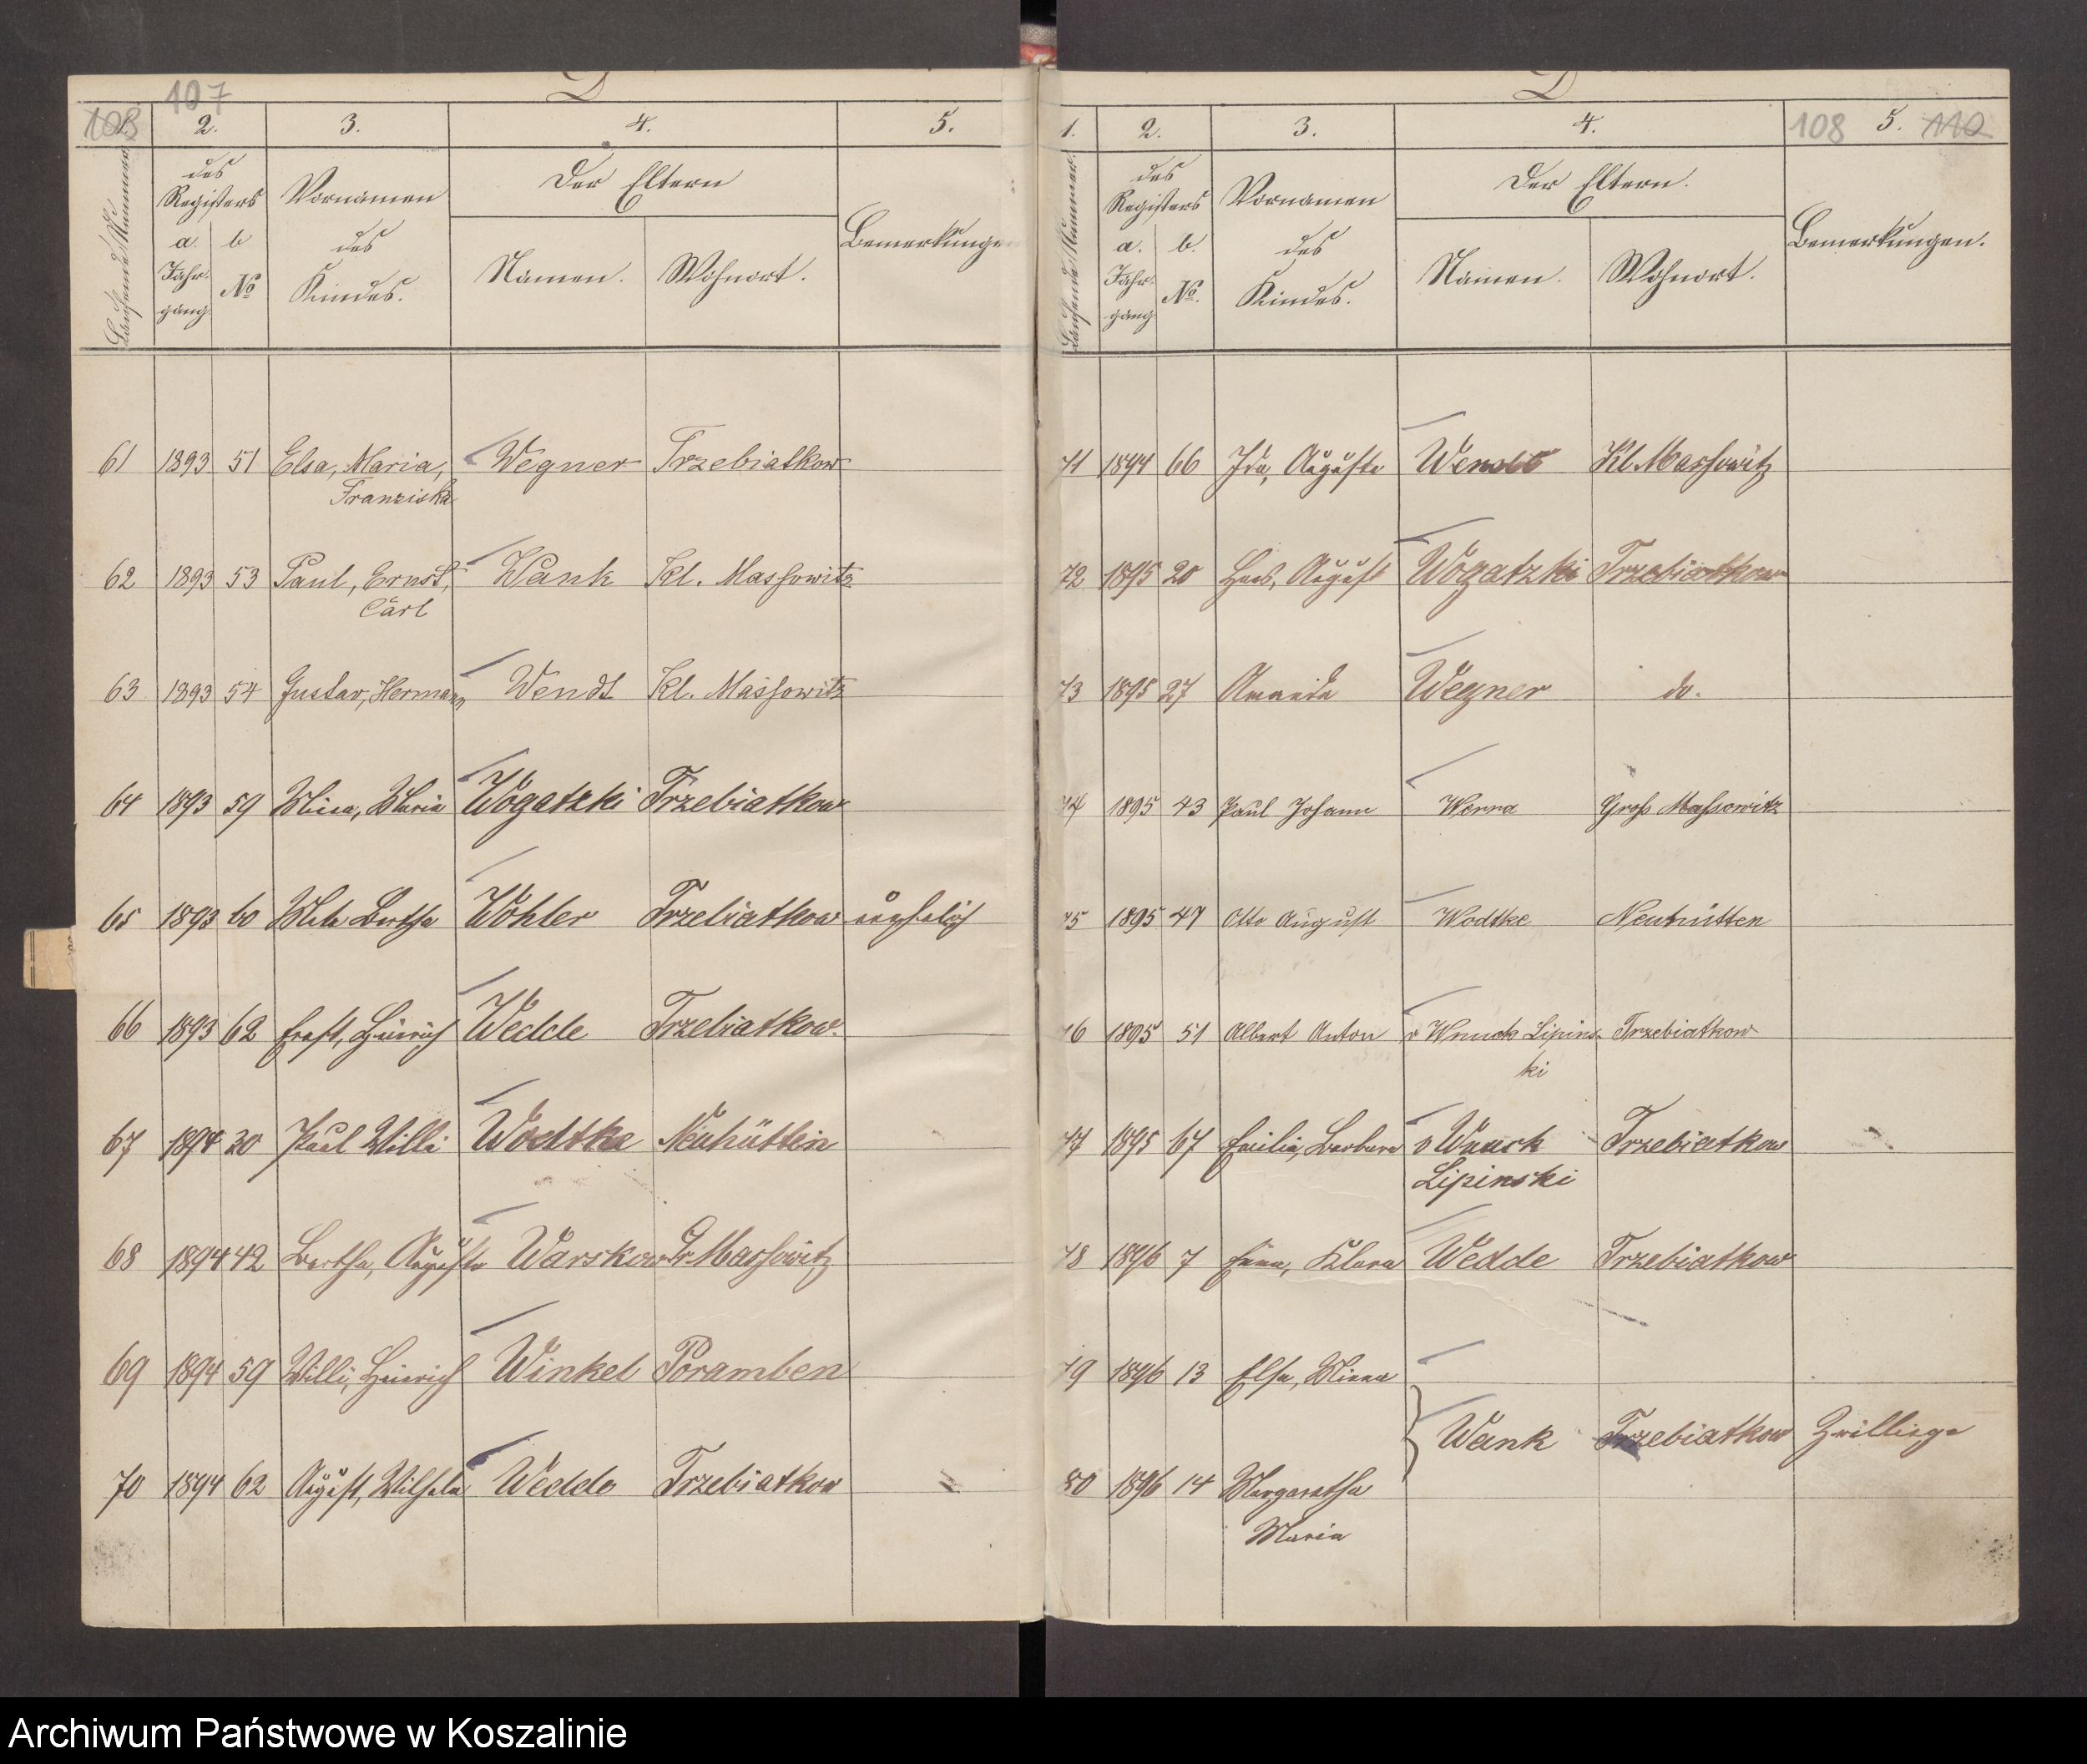 107
108
2. 3. 4. 5.
des
Registers
a. b
Jahr-
gang
No
Laufende Nummer
Vornamen
des
Kindes.
Der Eltern
Namen. Wohnort.
Bemerkungen
61 1893 51 Elsa, Maria, Wegner Trzebiatkow
Franziska
62 1893 53 Paul, Ernst, Wank Kl. Massowitz
Carl
63 1893 54 Gustav, Hermann Wendt Kl. Massowitz
64 1893 59 Minna, Maria Wogatzki Trzebiatkow
65 1893 60 Meta Bertha Wöhler Trzebiatkow unehelich
66 1893 62 Ernst, Heinrich Wedde Trzebiatkow.
67 1894 30 Paul Willi Wodtke Neuhütten
68 1894 42 Bertha, Auguste Warskow Gr. Massowitz
69 1894 59 Willi, Heinrich Winkel Poramben
70 1894 62 August, Wilhelm Wedde Trzebiatkow
1. 2. 3. 4. 108 5. 110
Laufende Nummer.
des
Registers
a. b.
Jahr-
gang
No.
Vornamen
des
Kindes.
Der Eltern.
Namen. Wohnort.
Bemerkungen.
71 1894 66 Ida, Auguste Wendt Kl. Massowitz
72 1895 20 August Wogatzki Trzebiatkow
73 1895 27 Wegner do.
74 1895 43 Paul Johann Werra Groß Massowitz
75 1895 47 Otto August Wodtke Neuhütten
76 1895 51 Albert Anton v Wnuck Lipins- Trzebiatkow
ki
77 1895 67 Emilie, Barbara v Wnuck Trzebiatkow
Lipinski
78 1896 7 Emma, Klara Wedde Trzebiatkow
79 1896 13 Elsa, Minna
Wank Trzebiatkow Zwillinge
80 1896 14 Margaretha
Maria
Archiwum Państwowe w Koszalinie